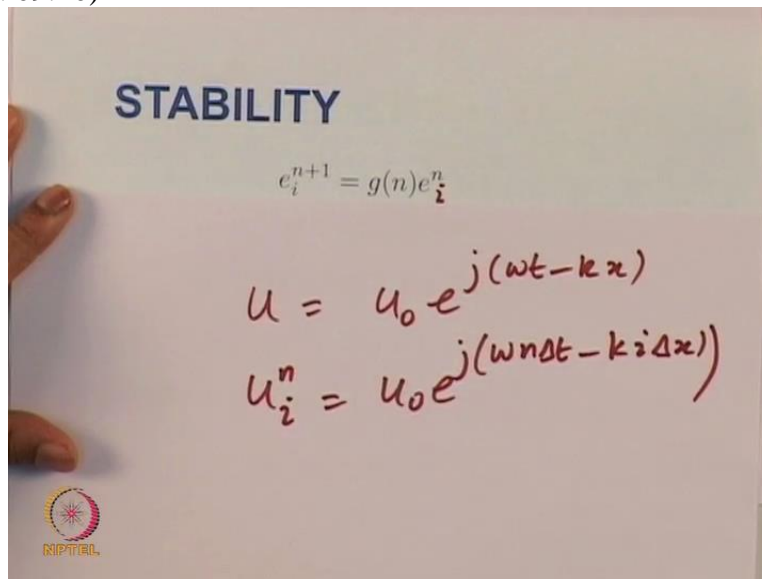 STABILITY
e_i^{n+1} = g(n)e_i^n
u = u_0 e^{j(ωt-kx)}
u_i^n = u_0 e^{j(ωnΔt-kiΔx))}
NPTEL